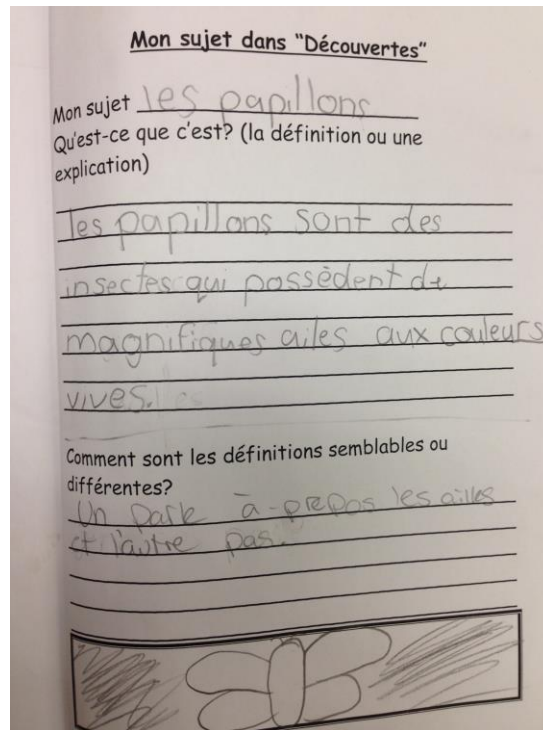 Mon sujet dans "Découvertes"
Mon sujet les papillons
Qu'est-ce que c'est? (la définition ou une
explication)
les papillons sont des
insectes qui possèdent de
magnifiques ailes aux couleurs
vives.
Comment sont les définitions semblables ou
différentes?
Un parle à-propos les ailles
et l'autre pas.